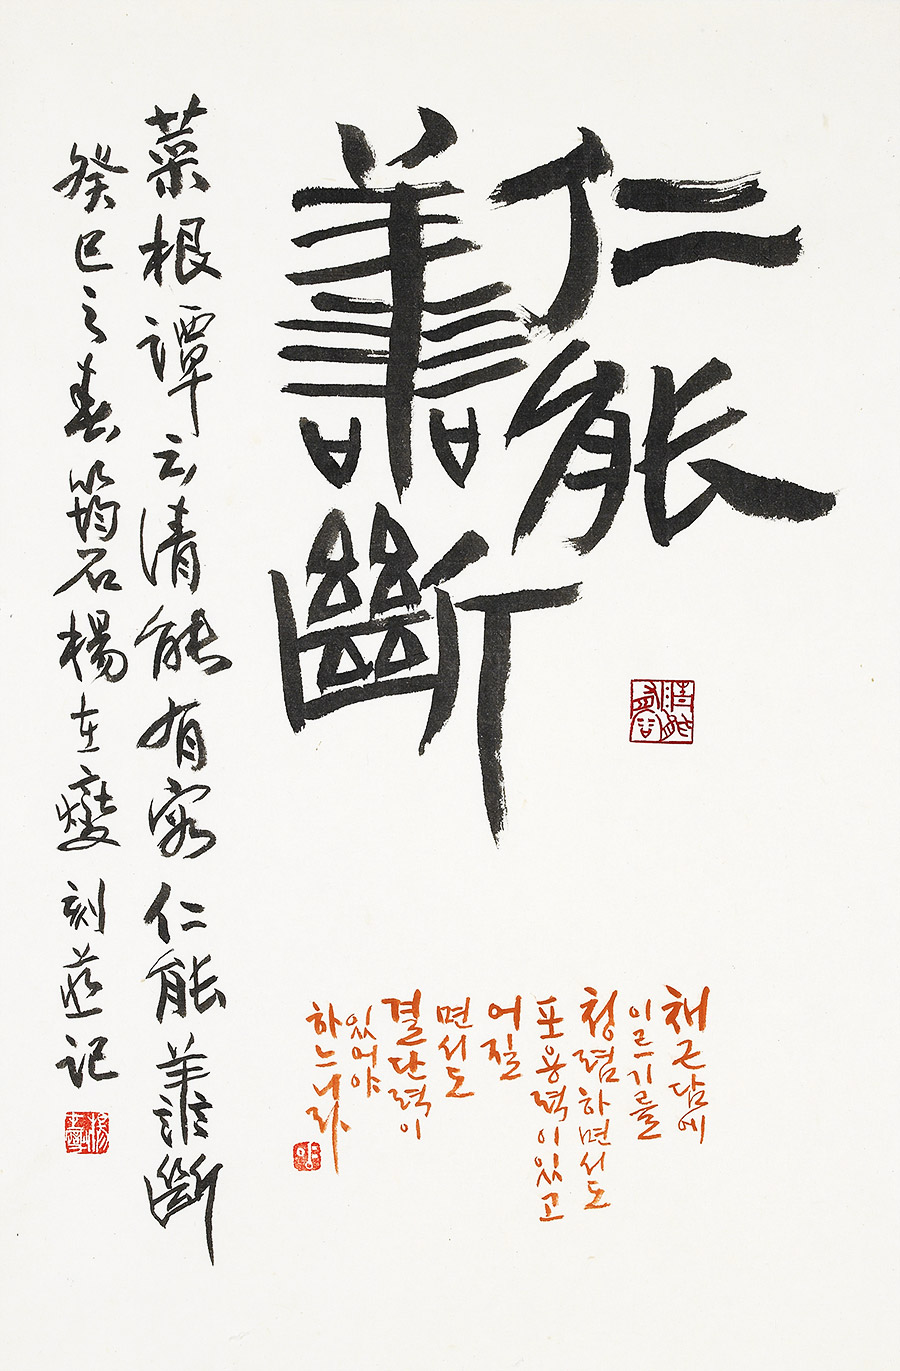 仁能
譱斷
菜根譚云清能有容仁能譱斷
癸巳之春筠石楊在燮刻並記
채근담에
이르기를
청렴하면서도
포용력이 있고
어질
면서도
결단력이
있어야
하느니라
清能有容